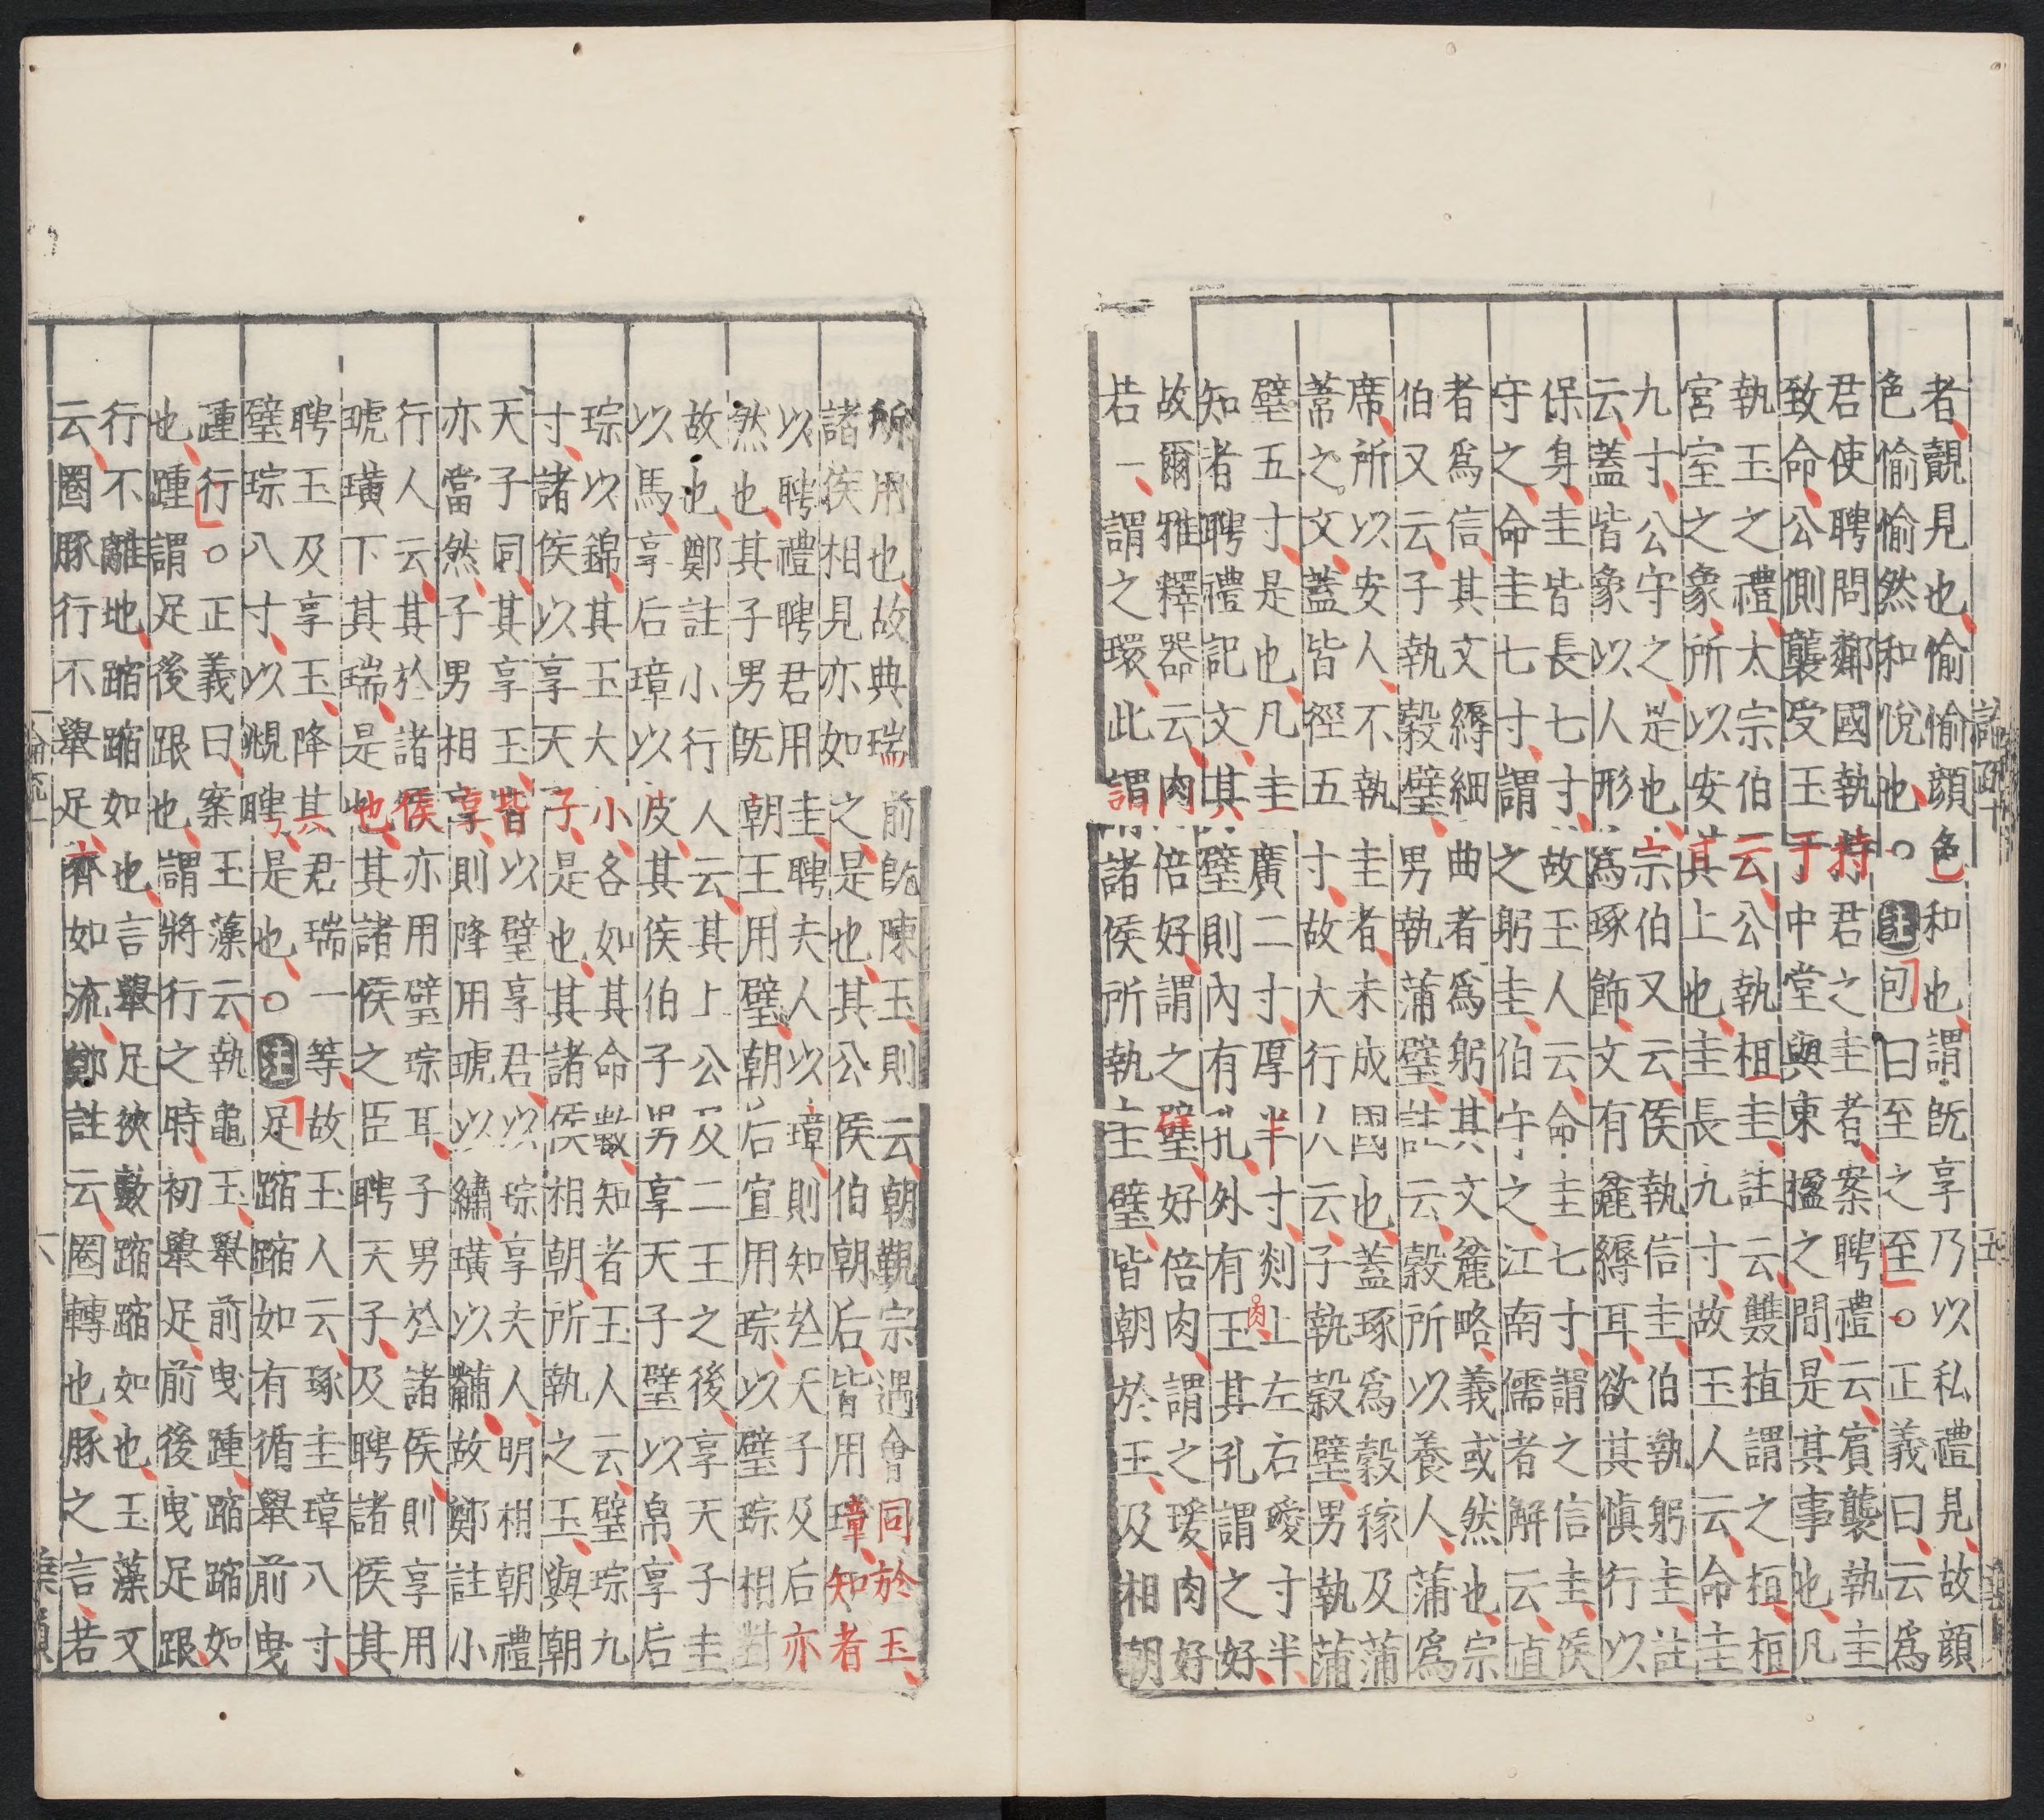 者覿見也愉愉顔色和也謂旣享乃以私禮見故顔
色愉愉然和悅也○註包曰至之至○正義曰云爲
君使聘問鄰國執持君之圭者案聘禮云賓襲執圭
致命公側襲受玉于中堂與東楹之間是其事也凡
執玉之禮太宗伯云公執桓圭註云雙植謂之桓桓
宮室之象所以安其上也圭長九寸故玉人云命圭
九寸公守之是也宗伯又云侯執信圭伯執躬圭註
云蓋皆象以人形爲琢飾文有麄縟耳欲其愼行以
保身圭皆長七寸故玉人云命圭七寸謂之信圭侯
守之命圭七寸謂之躬圭伯守之江南儒者解云直
者爲信其文縟細曲者爲躬其文麄略義或然也宗
伯又云子執穀璧男執蒲璧註云穀所以養人蒲爲
席所以安人不執圭者未成國也蓋琢爲穀稼及蒲
葦之文蓋皆徑五寸故大行人云子執穀璧男執蒲
璧五寸是也凡圭廣二寸厚半寸剡上左右寸半
肉
知者聘禮記文其璧則內有孔外有玉其孔謂之好
故爾雅釋器云肉倍好謂之璧好倍肉謂之瑗肉好
若一謂之環此謂諸侯所執圭璧皆朝於王及相朝
所用也故典瑞前旣陳玉則云朝覲宗遇會同於王
諸侯相見亦如之是也其公侯伯朝后皆用璋知者
以聘禮聘君用圭聘夫人以璋則知於天子及后亦
然也其子男旣朝王用璧朝后宜用琮以璧琮相對
故也鄭註小行人云其上公及二王之後享天子圭
以馬享后璋以皮其侯伯子男享天子璧以帛享后
琮以錦其玉大小各如其命數知者玉人云璧琮九
寸諸侯以享天子是也其諸侯相朝所執之玉與朝
天子同其享玉皆以璧享君以琮享夫人明相朝禮
亦當然子男相享則降用琥以繡璜以黼故鄭註小
行人云其於諸侯亦用璧琮耳子男於諸侯則享用
琥璜下其瑞是也其諸侯之臣聘天子及聘諸侯其
聘玉及享玉降其君瑞一等故玉人云琢圭璋八寸
璧琮八寸以覜聘是也○註足蹜蹜如有循舉前曳
踵行○正義曰案玉藻云執龜玉舉前曳踵蹜蹜如
也踵謂足後跟也謂將行之時初舉足前後曳足跟
行不離地蹜蹜如也言舉足狹數蹜蹜如也玉藻又
云圈豚行不舉足齊如流鄭註云圈轉也豚之言若